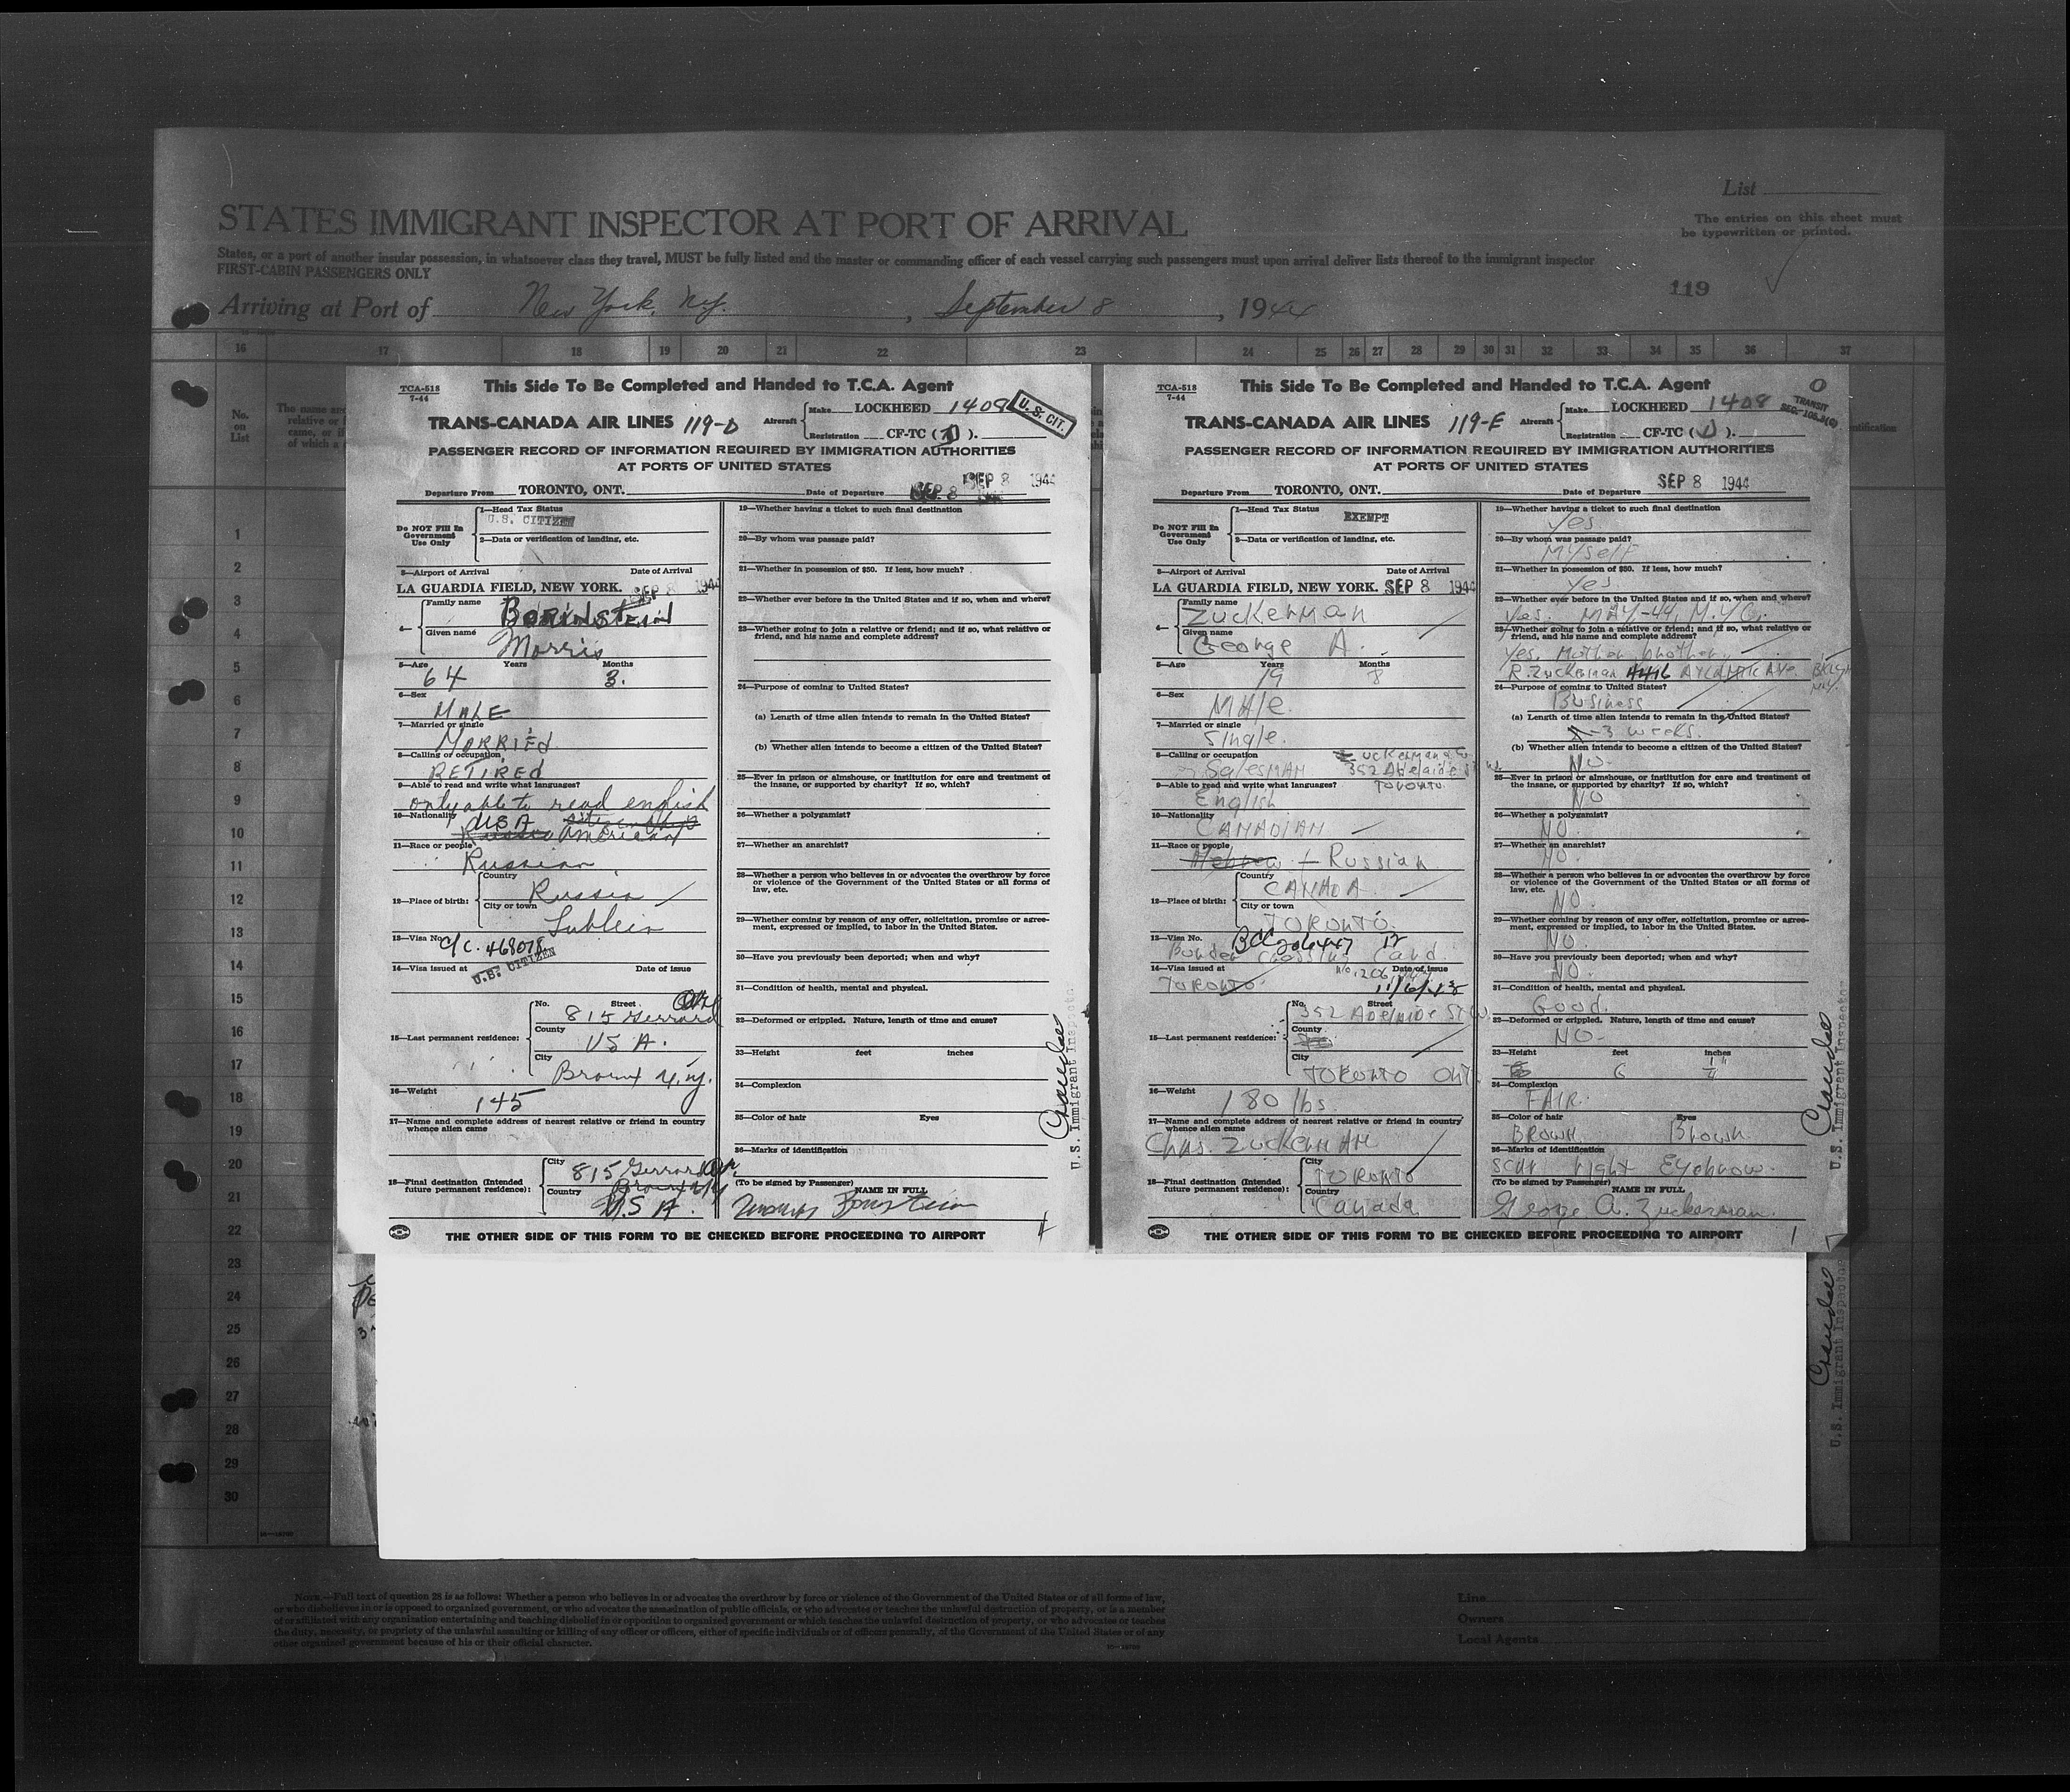 List
STATES IMMIGRANT INSPECTOR AT PORT OF ARRIVAL
The entries on this sheet must
be typewritten or printed.
States, or a port of another insular possession, in whatsoever class they travel, MUST be fully listed and the master or commanding officer of each vessel carrying such passengers must upon arrival deliver lists thereof to the immigrant inspector
FIRST-CABIN PASSENGERS ONLY
119
Arriving at Port of New York, N.Y., September 8, 1944
16 17 18 19 20 21 22 23 24 25 26 27 28 29 30 31 32 33 34 35 36 37
No.
on
List
1
2
3
4
5
6
7
8
9
10
11
12
13
14
15
16
17
18
19
20
21
22
23
24
25
26
27
28
29
30
TCA-518
7-44
This Side To Be Completed and Handed to T.C.A. Agent
TRANS-CANADA AIR LINES 119-D
Aircraft
Make LOCKHEED 1408
Registration CF-TC (D).
U.S. CIT.
PASSENGER RECORD OF INFORMATION REQUIRED BY IMMIGRATION AUTHORITIES
AT PORTS OF UNITED STATES
Departure From TORONTO, ONT. Date of Departure SEP 8 1944
Do NOT Fill In
Government
Use Only
1—Head Tax Status
U.S. CITIZEN
2—Data or verification of landing, etc.
3—Airport of Arrival Date of Arrival
LA GUARDIA FIELD, NEW YORK. SEP 8 1944
4—
Family name Bornstein
Given name Morris
5—Age Years Months
64 3.
6—Sex
MALE
7—Married or single
MARRIED
8—Calling or occupation
RETIRED
9—Able to read and write what languages?
only able to read english
10—Nationality USA
American
11—Race or people
Russian
12—Place of birth:
Country Russia
City or town Lublin
13—Visa No. C/C. 468078
U.S. CITIZEN
14—Visa issued at Date of issue
15—Last permanent residence:
No. Street
815 Gerrard Ave
County
USA.
City
Bronx N.Y.
16—Weight
145
17—Name and complete address of nearest relative or friend in country
whence alien came
18—Final destination (Intended
future permanent residence):
City 815 Gerrard Ave.
Bronx N.Y
Country U.S A.
19—Whether having a ticket to such final destination
20—By whom was passage paid?
21—Whether in possession of $50. If less, how much?
22—Whether ever before in the United States and if so, when and where?
23—Whether going to join a relative or friend; and if so, what relative or
friend, and his name and complete address?
24—Purpose of coming to United States?
(a) Length of time alien intends to remain in the United States?
(b) Whether alien intends to become a citizen of the United States?
25—Ever in prison or almshouse, or institution for care and treatment of
the insane, or supported by charity? If so, which?
26—Whether a polygamist?
27—Whether an anarchist?
28—Whether a person who believes in or advocates the overthrow by force
or violence of the Government of the United States or all forms of
law, etc.
29—Whether coming by reason of any offer, solicitation, promise or agree-
ment, expressed or implied, to labor in the United States.
30—Have you previously been deported; when and why?
31—Condition of health, mental and physical.
32—Deformed or crippled. Nature, length of time and cause?
33—Height feet inches
34—Complexion
35—Color of hair Eyes
36—Marks of identification
(To be signed by Passenger) NAME IN FULL
Morris Bornstein
U.S. Immigrant Inspector
THE OTHER SIDE OF THIS FORM TO BE CHECKED BEFORE PROCEEDING TO AIRPORT
TCA-518
7-44
This Side To Be Completed and Handed to T.C.A. Agent
TRANS-CANADA AIR LINES 119-E
Aircraft
Make LOCKHEED 1408
Registration CF-TC (D).
TRANSIT
PASSENGER RECORD OF INFORMATION REQUIRED BY IMMIGRATION AUTHORITIES
AT PORTS OF UNITED STATES
Departure From TORONTO, ONT. Date of Departure SEP 8 1944
Do NOT Fill In
Government
Use Only
1—Head Tax Status
EXEMPT
2—Data or verification of landing, etc.
3—Airport of Arrival Date of Arrival
LA GUARDIA FIELD, NEW YORK. SEP 8 1944
4—
Family name Zuckerman
Given name George A.
5—Age Years Months
19 8
6—Sex
MAle.
7—Married or single
single.
8—Calling or occupation
SalesMAN
Zuckerman & Co
352 Adelaide St W.
TORONTO.
9—Able to read and write what languages?
English
10—Nationality
CANADIAN
11—Race or people
Hebrew - Russian
12—Place of birth:
Country CANADA.
City or town TORONTO.
13—Visa No. BCC 206447 12
Border Crossing Card
14—Visa issued at Date of issue
TORONTO. 11/6/43
15—Last permanent residence:
No. Street
352 Adelaide St W.
County
City
TORONTO ONT.
16—Weight
180 lbs.
17—Name and complete address of nearest relative or friend in country
whence alien came
Chas. ZUCKERMAN
18—Final destination (Intended
future permanent residence):
City TORONTO
Country Canada
19—Whether having a ticket to such final destination
Yes
20—By whom was passage paid?
Myself
21—Whether in possession of $50. If less, how much?
Yes.
22—Whether ever before in the United States and if so, when and where?
Yes. MAY-44, N.Y.C.
23—Whether going to join a relative or friend; and if so, what relative or
friend, and his name and complete address?
Yes, Mother, brother,
R. Zuckerman 4416 Atlantic Ave. BKLYN
N.Y.
24—Purpose of coming to United States?
Business
(a) Length of time alien intends to remain in the United States?
3 weeks.
(b) Whether alien intends to become a citizen of the United States?
No.
25—Ever in prison or almshouse, or institution for care and treatment of
the insane, or supported by charity? If so, which?
NO
26—Whether a polygamist?
NO.
27—Whether an anarchist?
NO.
28—Whether a person who believes in or advocates the overthrow by force
or violence of the Government of the United States or all forms of
law, etc.
NO.
29—Whether coming by reason of any offer, solicitation, promise or agree-
ment, expressed or implied, to labor in the United States.
NO.
30—Have you previously been deported; when and why?
NO.
31—Condition of health, mental and physical.
Good.
32—Deformed or crippled. Nature, length of time and cause?
NO.
33—Height feet inches
6 1/4"
34—Complexion
FAIR.
35—Color of hair Eyes
BROWN Brown
36—Marks of identification
scar right Eyebrow.
(To be signed by Passenger) NAME IN FULL
George A. Zuckerman.
U.S. Immigrant Inspector
THE OTHER SIDE OF THIS FORM TO BE CHECKED BEFORE PROCEEDING TO AIRPORT
U.S. Immigrant Inspector
NOTE.—Full text of question 28 is as follows: Whether a person who believes in or advocates the overthrow by force or violence of the Government of the United States or of all forms of law,
or who disbelieves in or is opposed to organized government, or who advocates the assassination of public officials, or who advocates or teaches the unlawful destruction of property, or is a member
of or affiliated with any organization entertaining and teaching disbelief in or opposition to organized government or which teaches the unlawful destruction of property, or who advocates or teaches
the duty, necessity, or propriety of the unlawful assaulting or killing of any officer or officers, either of specific individuals or of officers generally, of the Government of the United States or of any
other organized government because of his or their official character.
Line
Owners
Local Agents